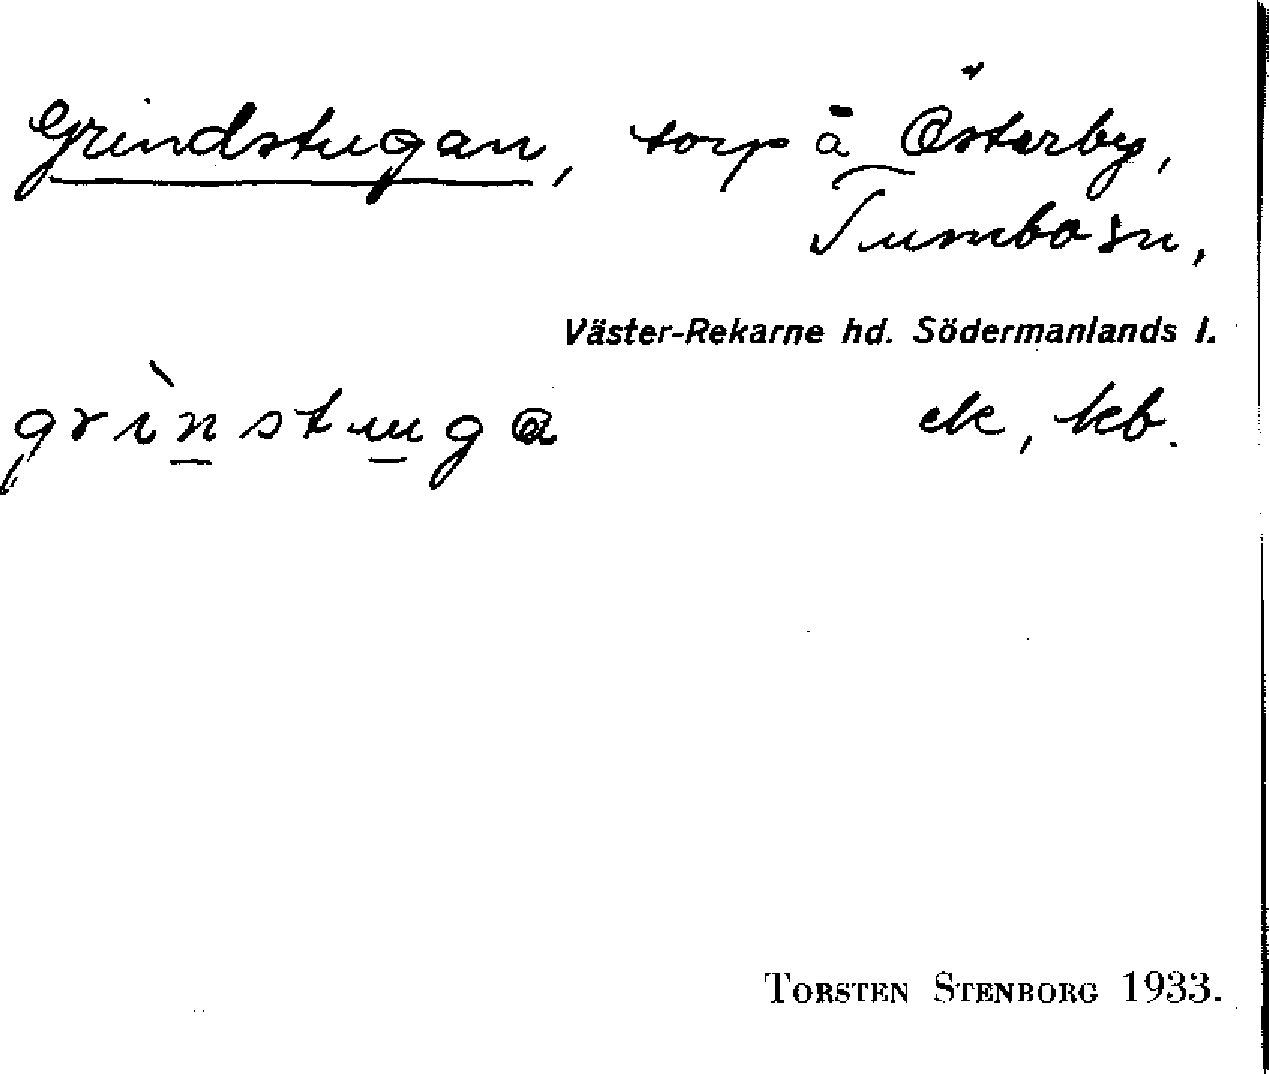 Grindstugan, torp å Österby,
Tumbo sn,
Väster-Rekarne hd. Södermanlands l.
grìnstuga ek, kb.
TORSTEN STENBORG 1933.